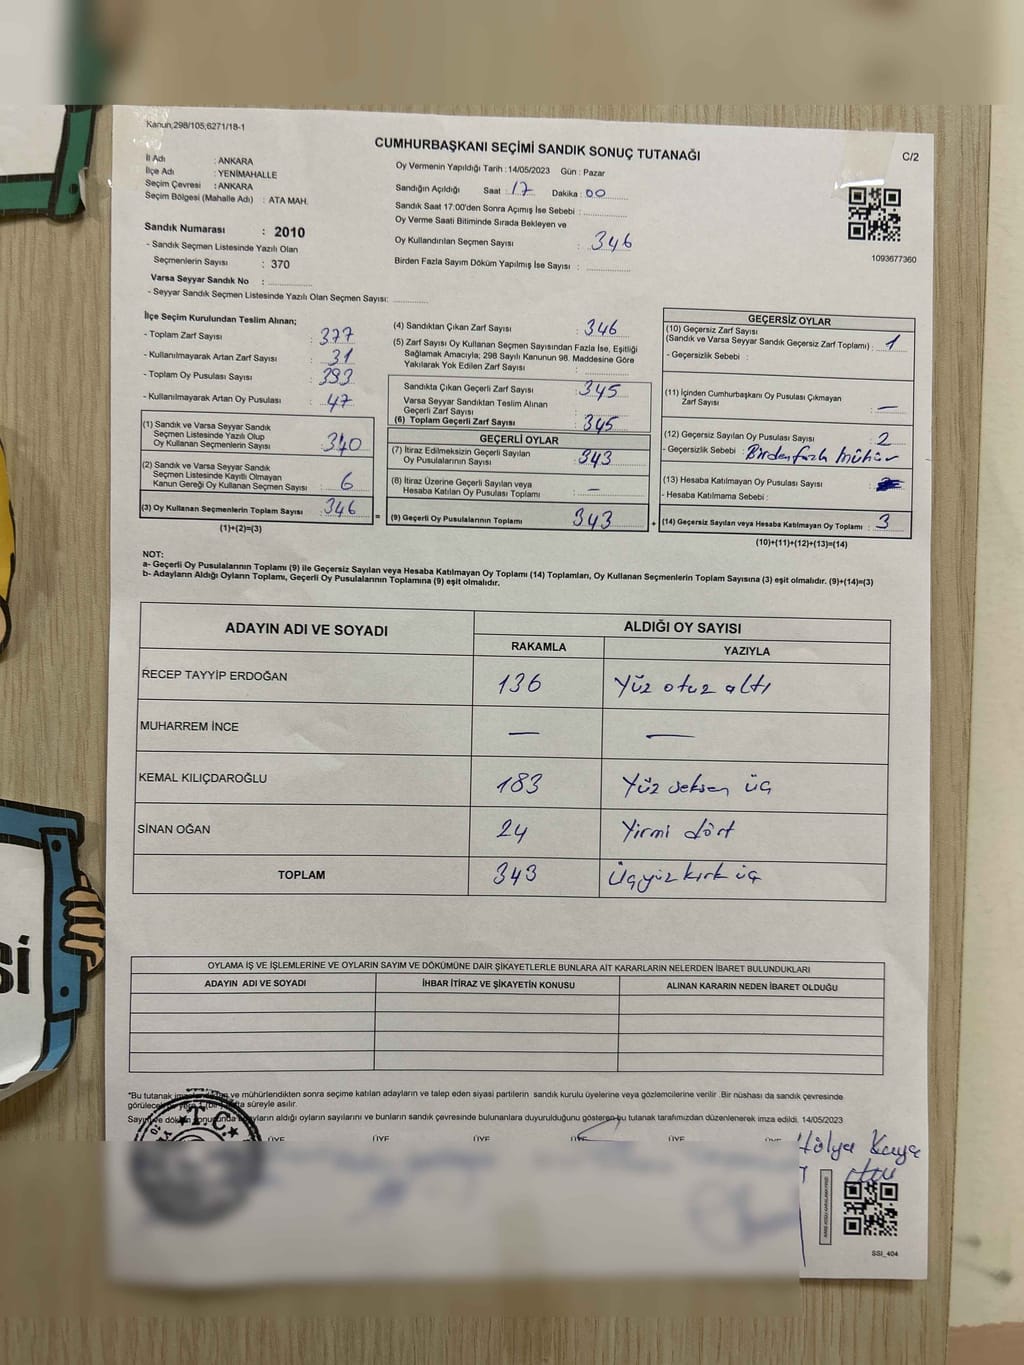 Kanun,298/105;6271/18-1
CUMHURBAŞKANI SEÇİMİ SANDIK SONUÇ TUTANAĞI
C/2
İl Adı : ANKARA
İlçe Adı : YENİMAHALLE
Seçim Çevresi : ANKARA
Seçim Bölgesi (Mahalle Adı) : ATA MAH.
Oy Vermenin Yapıldığı Tarih : 14/05/2023 Gün : Pazar
Sandığın Açıldığı Saat : 17 Dakika : 00
Sandık Saat 17:00'den Sonra Açımış İse Sebebi :
Oy Verme Saati Bitiminde Sırada Bekleyen ve
Oy Kullandırılan Seçmen Sayısı : 346
Birden Fazla Sayım Döküm Yapılmış İse Sayısı :
1093677360
Sandık Numarası : 2010
- Sandık Seçmen Listesinde Yazılı Olan
Seçmenlerin Sayısı : 370
Varsa Seyyar Sandık No :
- Seyyar Sandık Seçmen Listesinde Yazılı Olan Seçmen Sayısı:
İlçe Seçim Kurulundan Teslim Alınan;
- Toplam Zarf Sayısı : 377
- Kullanılmayarak Artan Zarf Sayısı : 31
- Toplam Oy Pusulası Sayısı : 393
- Kullanılmayarak Artan Oy Pusulası : 47
(1) Sandık ve Varsa Seyyar Sandık
Seçmen Listesinde Yazılı Olup
Oy Kullanan Seçmenlerin Sayısı : 340
(2) Sandık ve Varsa Seyyar Sandık
Seçmen Listesinde Kayıtlı Olmayan
Kanun Gereği Oy Kullanan Seçmen Sayısı : 6
(3) Oy Kullanan Seçmenlerin Toplam Sayısı : 346
(1)+(2)=(3)
(4) Sandıktan Çıkan Zarf Sayısı : 346
(5) Zarf Sayısı Oy Kullanan Seçmen Sayısından Fazla İse, Eşitliği
Sağlamak Amacıyla; 298 Sayılı Kanunun 98. Maddesine Göre
Yakılarak Yok Edilen Zarf Sayısı :
Sandıkta Çıkan Geçerli Zarf Sayısı : 345
Varsa Seyyar Sandıktan Teslim Alınan
Geçerli Zarf Sayısı :
(6) Toplam Geçerli Zarf Sayısı : 345
GEÇERLİ OYLAR
(7) İtiraz Edilmeksizin Geçerli Sayılan
Oy Pusulalarının Sayısı : 343
(8) İtiraz Üzerine Geçerli Sayılan veya
Hesaba Katılan Oy Pusulası Toplamı : —
= (9) Geçerli Oy Pusulalarının Toplamı : 343 +
GEÇERSİZ OYLAR
(10) Geçersiz Zarf Sayısı
(Sandık ve Varsa Seyyar Sandık Geçersiz Zarf Toplamı) : 1
- Geçersizlik Sebebi :
(11) İçinden Cumhurbaşkanı Oy Pusulası Çıkmayan
Zarf Sayısı : —
(12) Geçersiz Sayılan Oy Pusulası Sayısı : 2
- Geçersizlik Sebebi : Birden fazla Mühür
(13) Hesaba Katılmayan Oy Pusulası Sayısı :
- Hesaba Katılmama Sebebi :
(14) Geçersiz Sayılan veya Hesaba Katılmayan Oy Toplamı : 3
(10)+(11)+(12)+(13)=(14)
NOT:
a- Geçerli Oy Pusulalarının Toplamı (9) ile Geçersiz Sayılan veya Hesaba Katılmayan Oy Toplamı (14) Toplamları, Oy Kullanan Seçmenlerin Toplam Sayısına (3) eşit olmalıdır. (9)+(14)=(3)
b- Adayların Aldığı Oyların Toplamı, Geçerli Oy Pusulalarının Toplamına (9) eşit olmalıdır.
ADAYIN ADI VE SOYADI ALDIĞI OY SAYISI
RAKAMLA YAZIYLA
RECEP TAYYİP ERDOĞAN 136 Yüz otuz altı
MUHARREM İNCE — —
KEMAL KILIÇDAROĞLU 183 Yüz seksen üç
SİNAN OĞAN 24 Yirmi dört
TOPLAM 343 Üçyüz kırk üç
OYLAMA İŞ VE İŞLEMLERİNE VE OYLARIN SAYIM VE DÖKÜMÜNE DAİR ŞİKAYETLERLE BUNLARA AİT KARARLARIN NELERDEN İBARET BULUNDUKLARI
ADAYIN ADI VE SOYADI İHBAR İTİRAZ VE ŞİKAYETİN KONUSU ALINAN KARARIN NEDEN İBARET OLDUĞU
*Bu tutanak ve mühürlendikten sonra seçime katılan adayların ve talep eden siyasi partilerin sandık kurulu üyelerine veya gözlemcilerine verilir .Bir nüshası da sandık çevresinde
görülecek süreyle asılır.
Sayım ve döküm sonucunda adayların aldığı oyların sayılarını ve bunların sandık çevresinde bulunanlara duyurulduğunu gösteren bu tutanak tarafımızdan düzenlenerek imza edildi. 14/05/2023
T.C.
ÜYE ÜYE ÜYE ÜYE ÜYE ÜYE
Hülya Kaya
SSI_404
Sİ